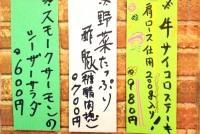 牛サイコロステーキ
肩ロース仕用 200g入り!
¥980円
野菜たっぷり
酢豚(豚肩肉)
¥700円
スモークサーモンの
シーザーサラダ
¥600円